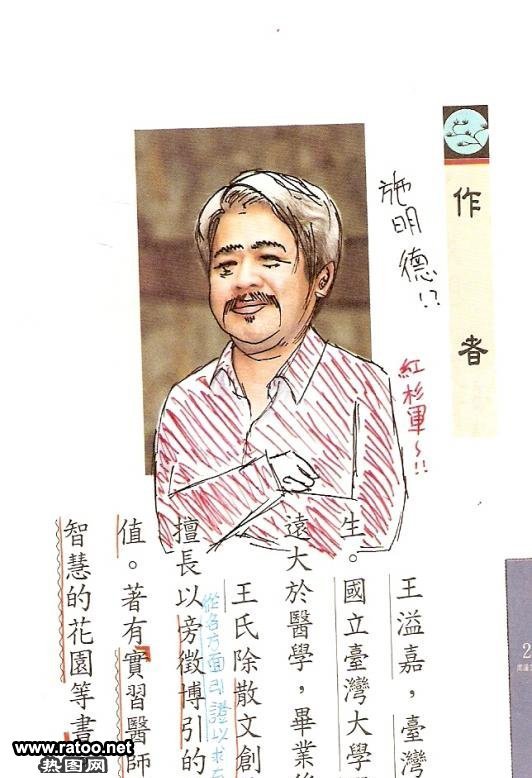 作者
施明德!?
紅杉軍~!!
王溢嘉，臺灣
生。國立臺灣大學
遠大於醫學，畢業後
王氏除散文創
從各方面引證以求
擅長以旁徵博引的
值。著有實習醫師
智慧的花園等書
2
www.ratoo.net
热图网